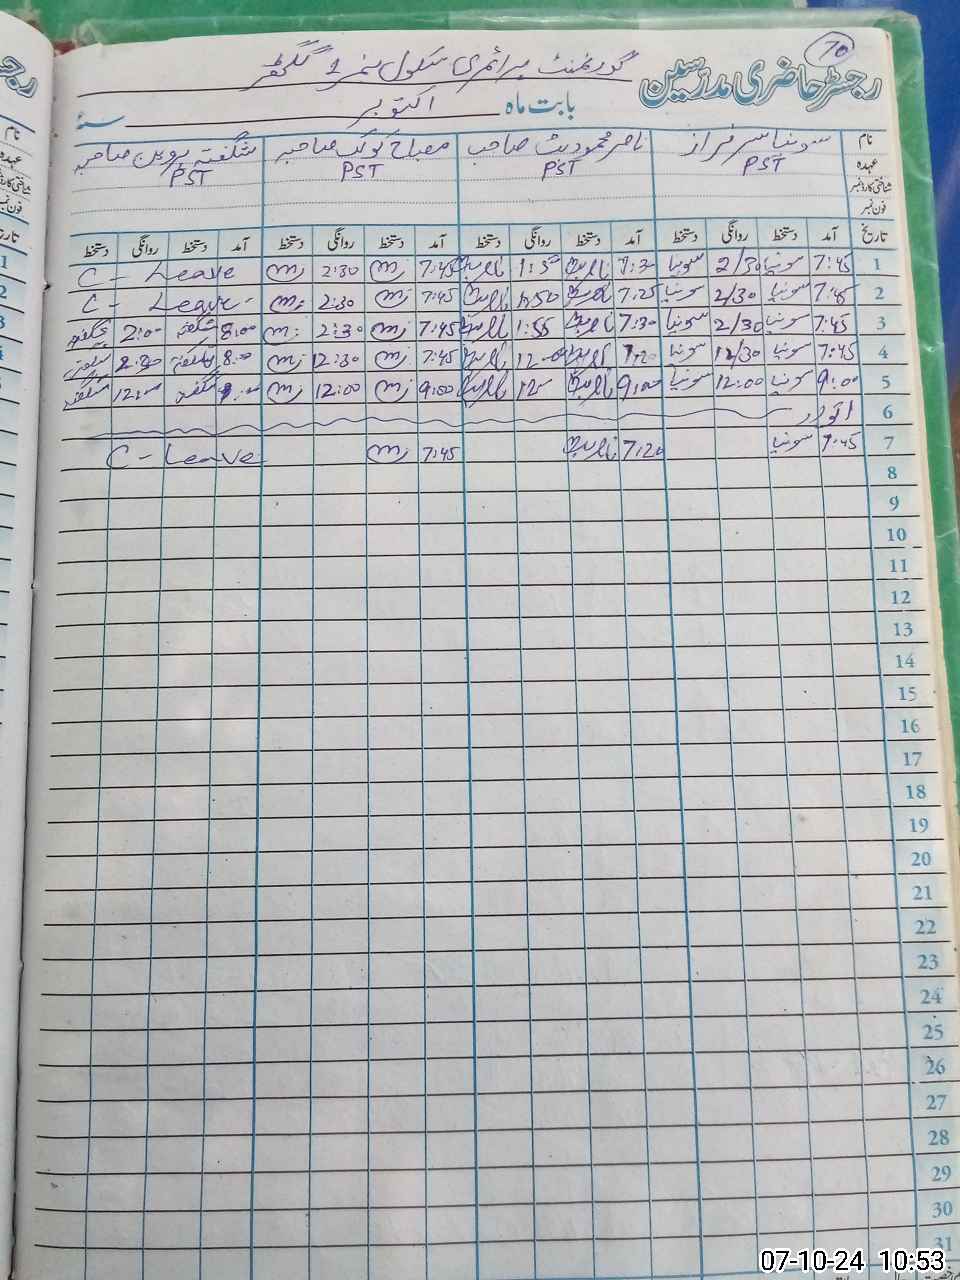 70
رجسٹر حاضری مدرسین گورنمنٹ پرائمری سکول نمبر 1 گکھڑ
بابت ماہ اکتوبر سنہ
نام سونیا سرفراز ناصر محمود بٹ صاحب مصباح کوکب صاحبہ شگفتہ پروین صاحبہ
عہدہ PST PST PST PST
شناختی کارڈ نمبر
فون نمبر
تاریخ آمد دستخط روانگی دستخط آمد دستخط روانگی دستخط آمد دستخط روانگی دستخط آمد دستخط روانگی دستخط
1 7:45 سونیا 2/30 سونیا 7:30 1:30 7:45 m 2:30 m C - Leave
2 7:45 سونیا 2/30 سونیا 7:25 1:50 7:45 m 2:30 m C - Leave
3 7:45 سونیا 2/30 سونیا 7:30 1:55 7:45 m 2:30 m 8:00 شگفتہ 2:00 شگفتہ
4 7:45 سونیا 12/30 سونیا 7:20 12 7:45 m 12:30 m 8:00 شگفتہ شگفتہ
5 9:00 سونیا 12:00 سونیا 9:00 12 9:00 m 12:00 m شگفتہ 12:00 شگفتہ
6 اتوار
7 7:45 سونیا 7:20 7:45 m C - Leave
8
9
10
11
12
13
14
15
16
17
18
19
20
21
22
23
24
25
26
27
28
29
30
31
07-10-24 10:53